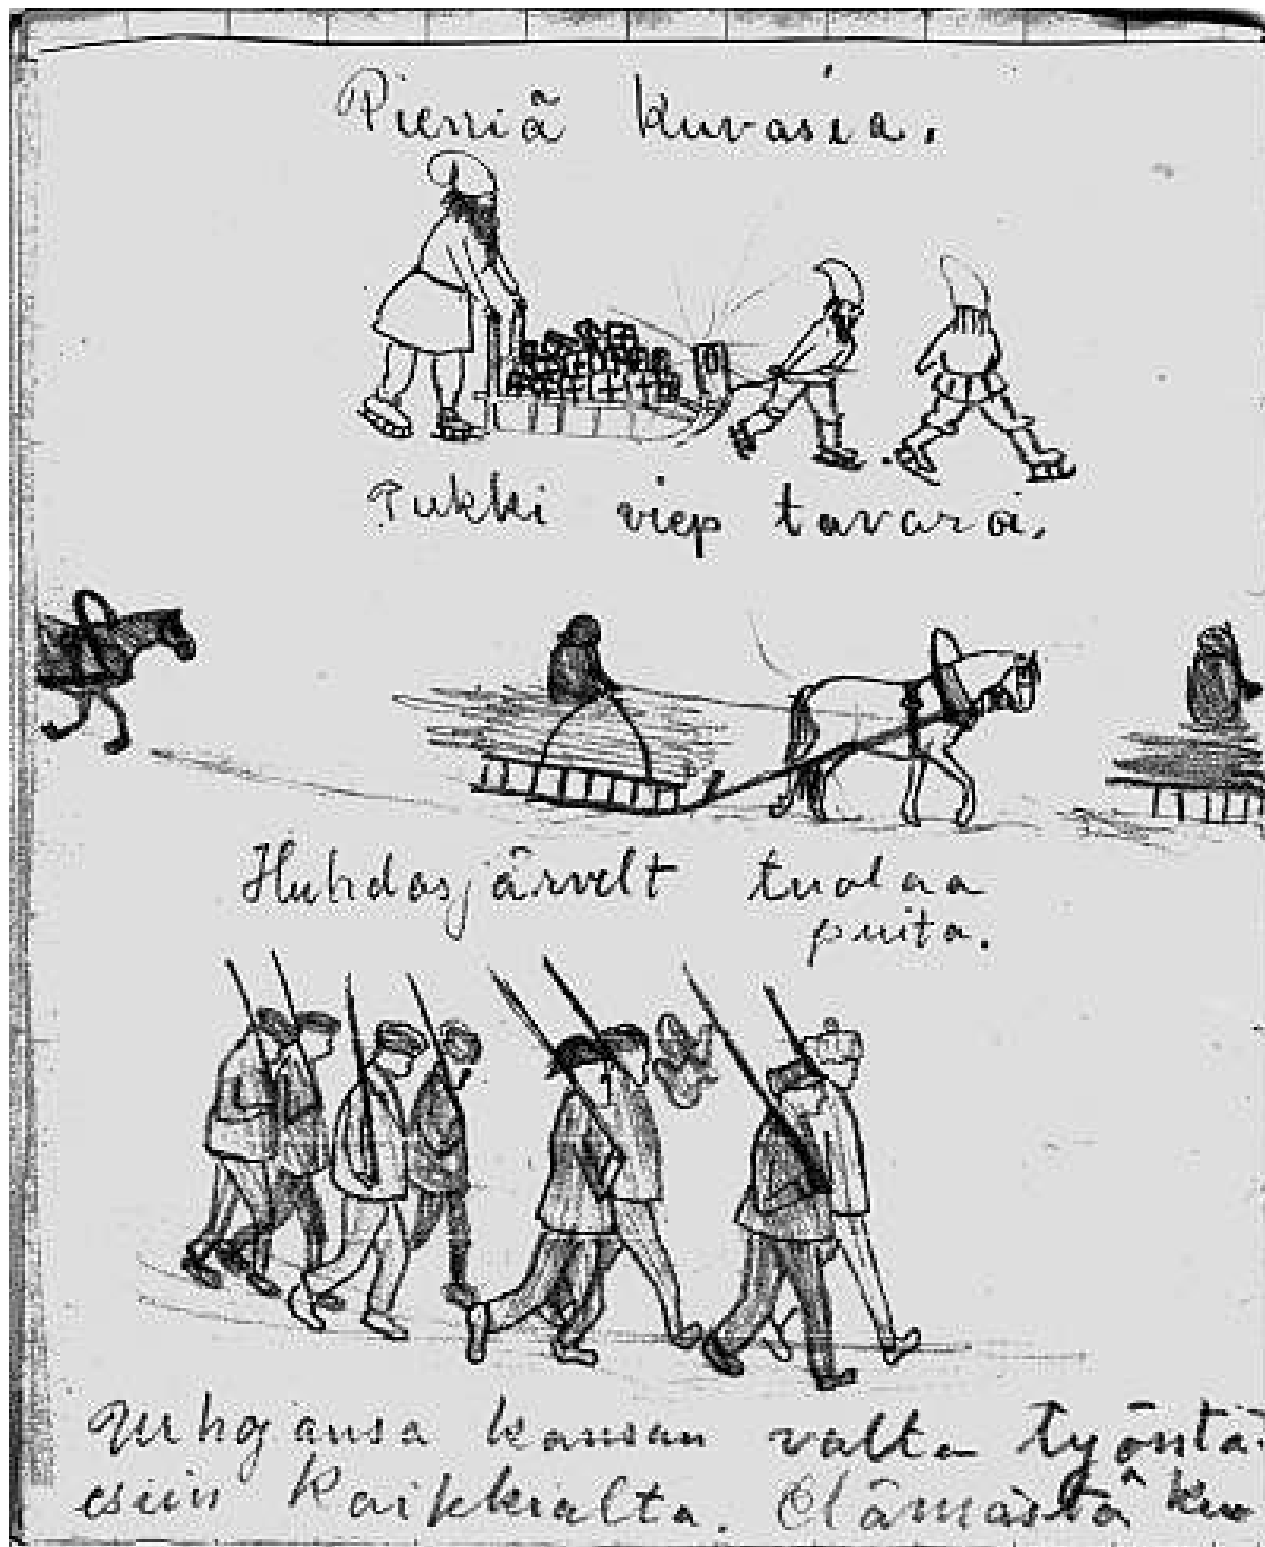 Pieniä kuvasia.
Pukki viep tavarai.
Huhdasjärvelt tuolaa
puita.
Urhojansa kansan valta työntä
esiin kaikkialta. Elämästä kuo